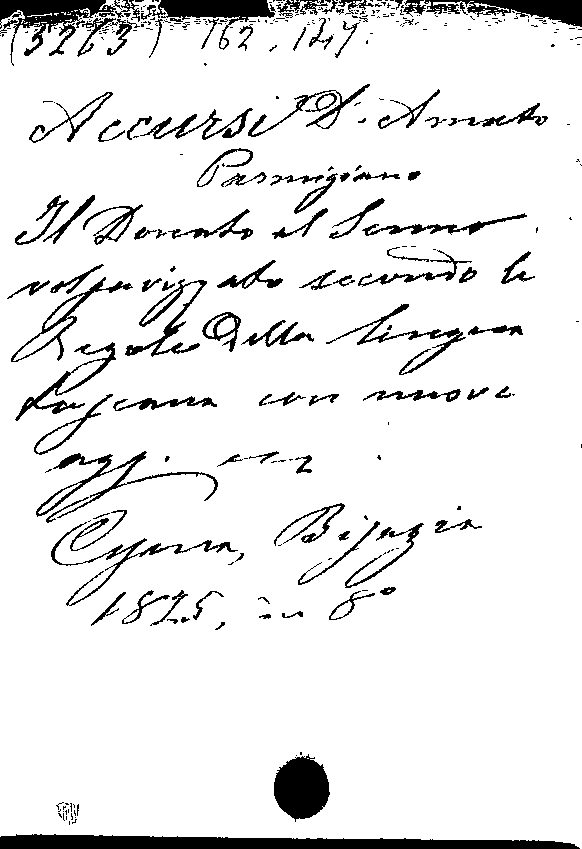 (3263) 162.147.
Accursi D. Amato
Parmigiano
Il Donato al Senno
volgarizzato secondo le
Regole della lingua
Toscana con nuove
agg. ecc.
Cesena, Bisazia
1825, in 8º